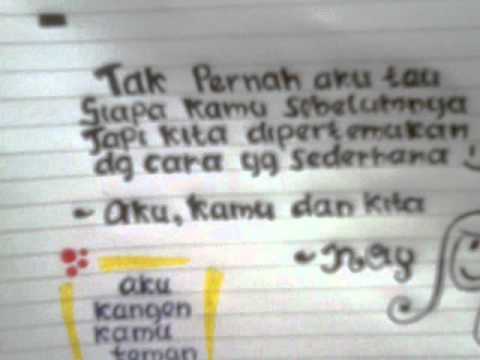 Tak Pernah aku tau
Siapa kamu sebelumnya
Tapi kita dipertemukan
dg cara yg sederhana :)
- aku, kamu dan kita
- nay
aku
kangen
kamu
teman